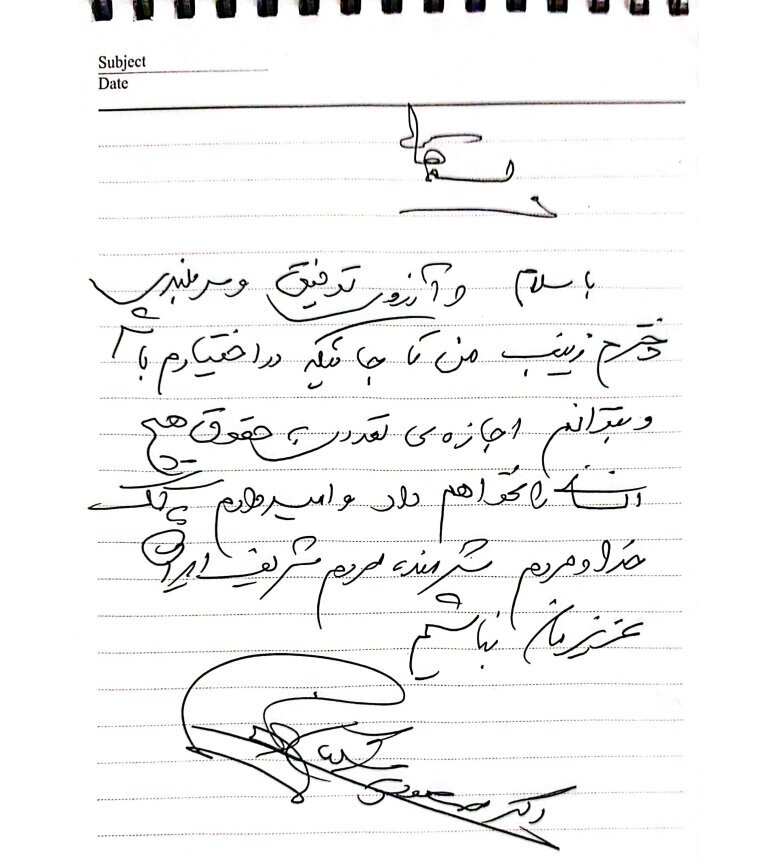 Subject
Date
بسمه تعالی
با سلام و آرزوی توفیق و سربلندی
دخترم زینب من تا جائیکه در اختیارم باشد
و بتوانم اجازه‌ی تعدی به حقوق هیچ
انسانی را نخواهم داد و امیدوارم به کمک
خدا و مردم شرمنده مردم شریف ایران
عزیزمان نباشم
دکتر مسعود